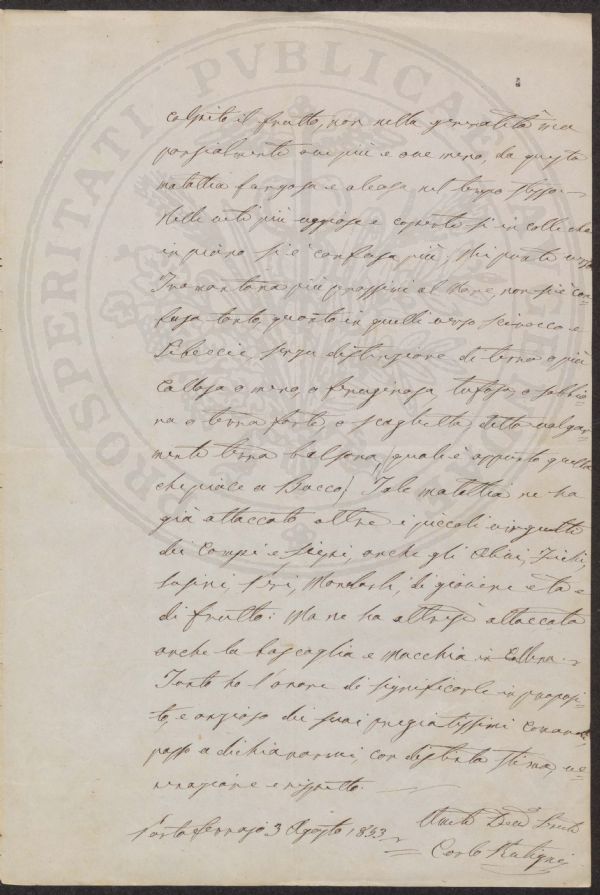 PROSPERITATI PVBLICAE
colpito il frutto, non nella generalità, ma
parzialmente ove più e ove meno, da questa
malattia fungosa e oleosa nel tempo stesso.
Nelle viti più uggiose e coperte sì in colle che
in piano si è confusa più, nei punti verso
Tramontana più prossimi al Mare, non si è con-
fusa tanto, quanto in quelli verso Scirocco e
Libeccio, senza distinzione di terra o più
Callosa o meno, o feruginosa, tufosa, o sabbio-
na o terra forte o scaglietta, detta volgar-
mente terra balsana, quale è appunto quella
che piace a Bacco / Tale malattia ne ha
già attaccato oltre i piccoli virgulti
dei Campi e , anche gli Ulivi, Fichi,
Susini, Peri, Mandorli, di giovine età e
di frutto: Ma ne ha altresì attaccata
anche la boscaglia e macchia in Collina.
Tanto ho l'onore di significarle in proposi-
to, e ansioso dei suoi pregiatissimi comandi,
passo a dichiararmi, con distinta stima, ve-
nerazione e rispetto.
Porto Ferrajo 3 Agosto 1853
Carlo